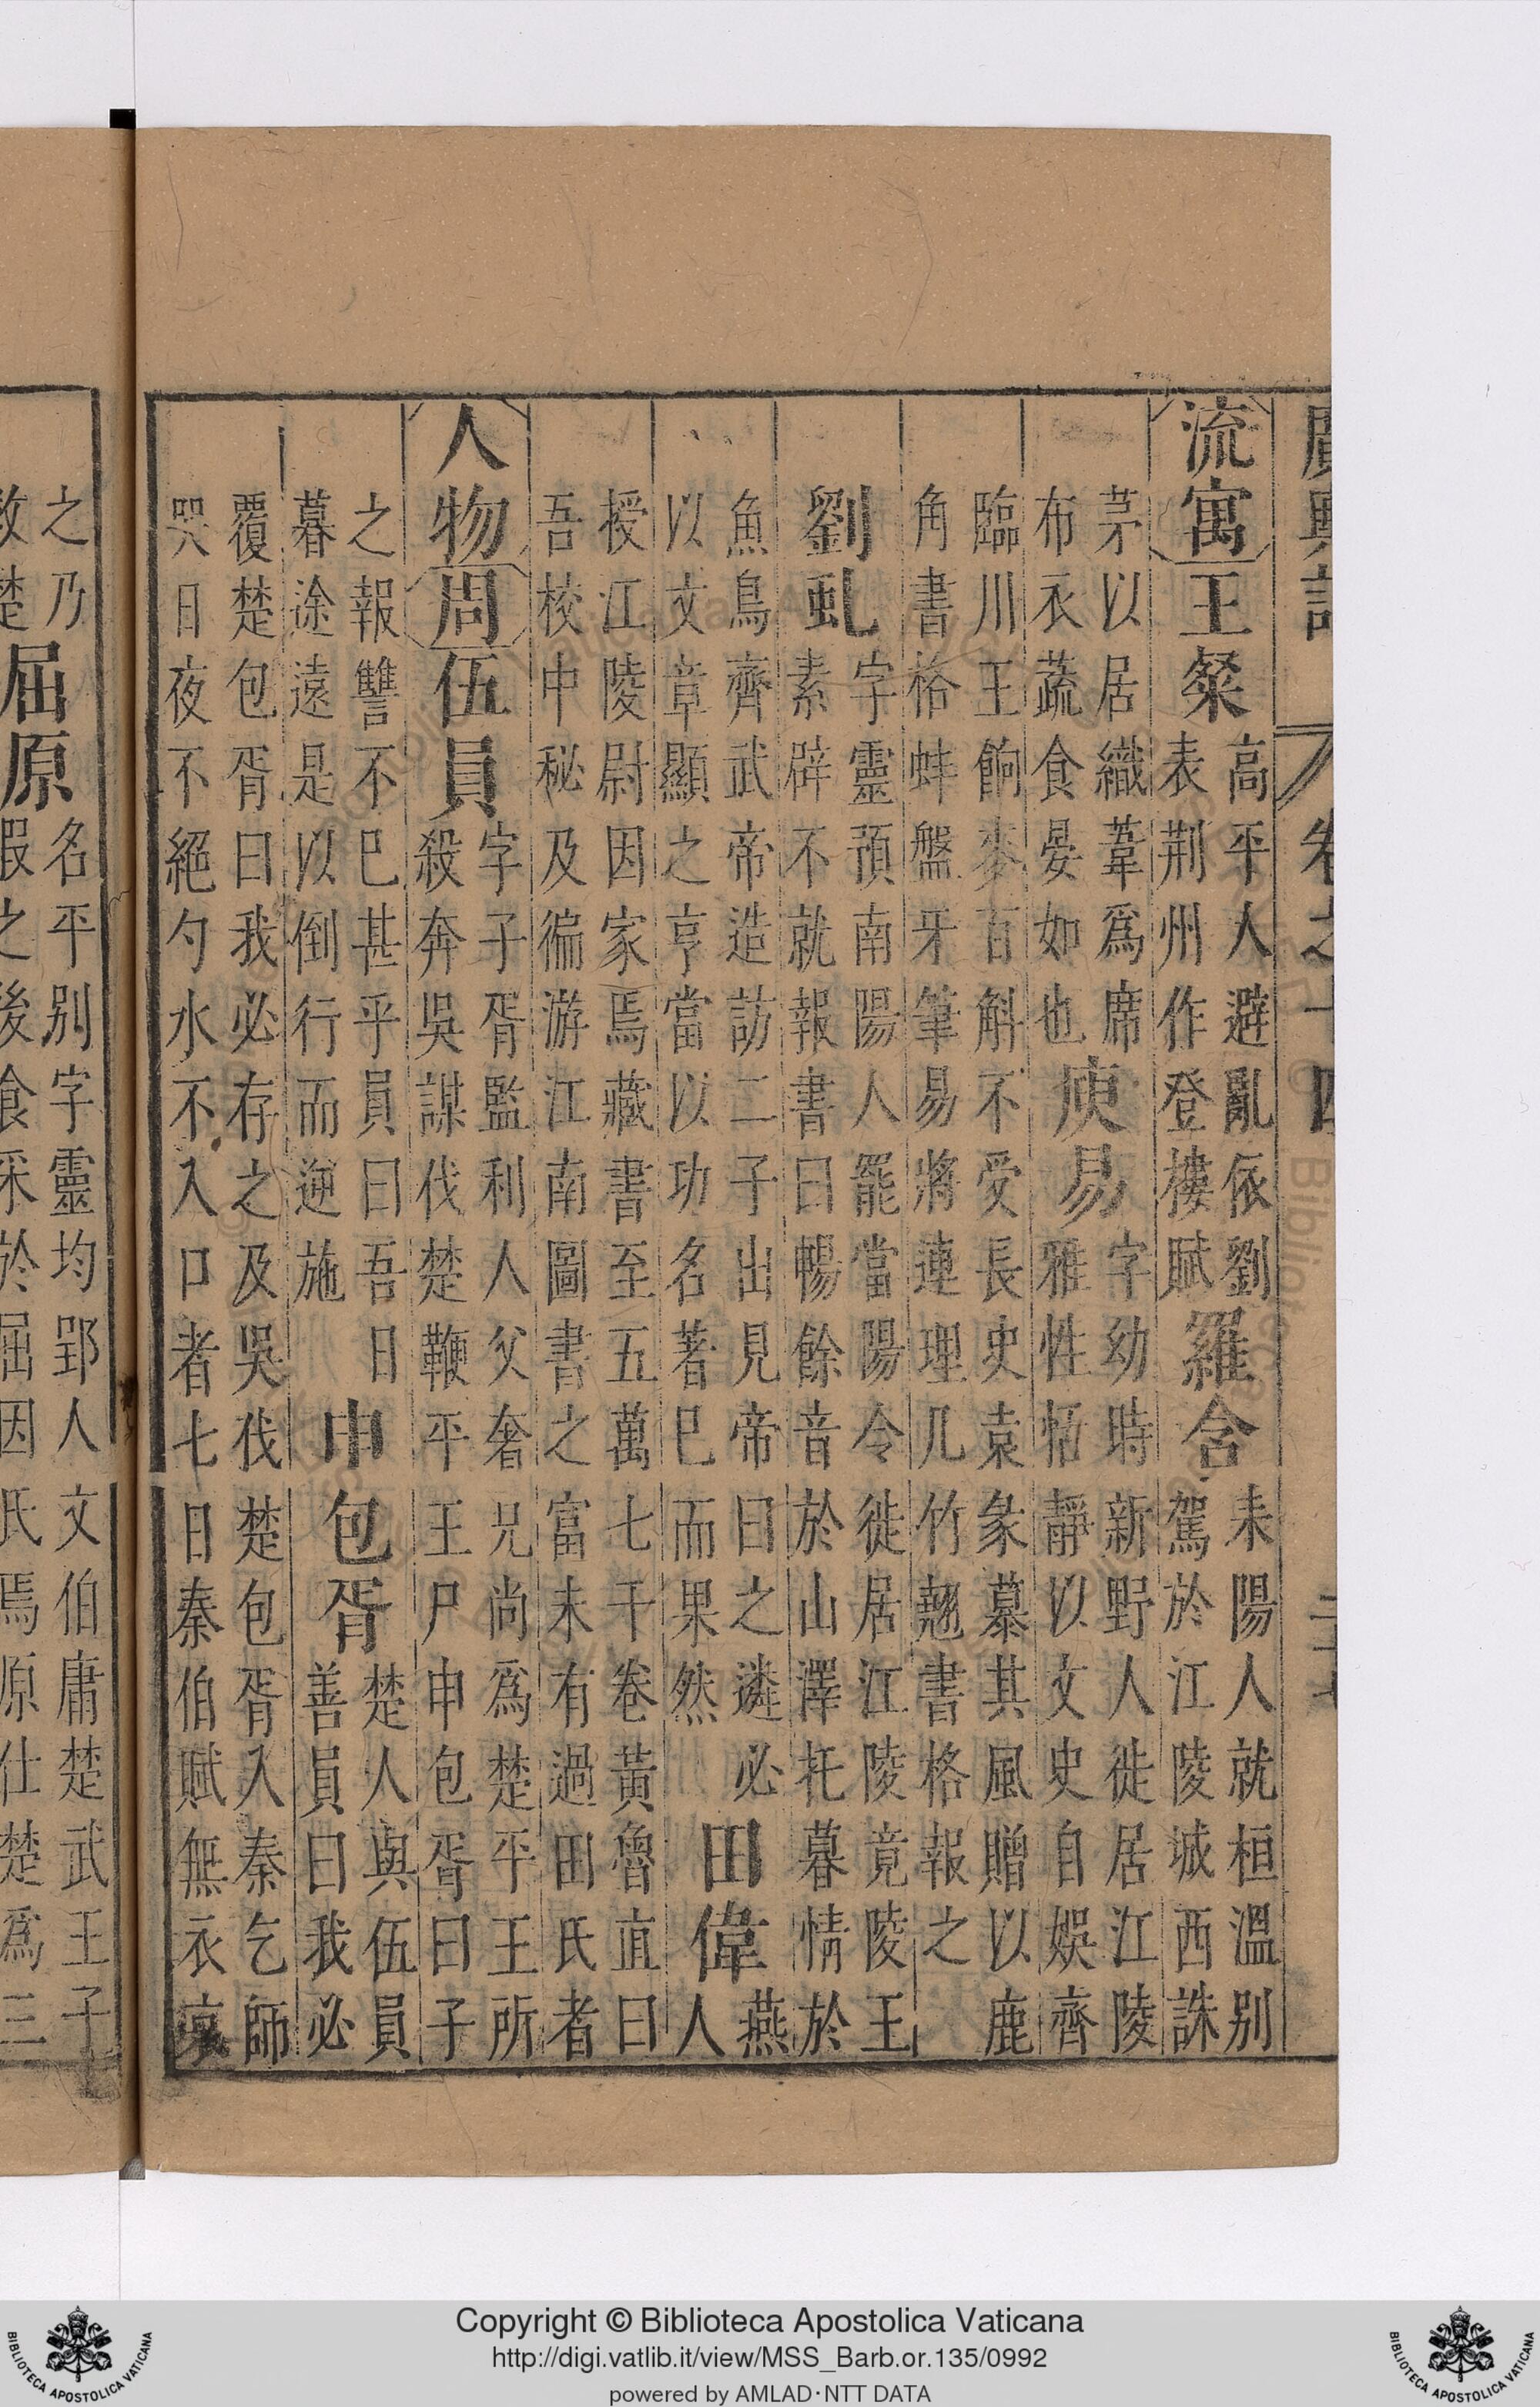 廣輿記 卷之十四 二十七
流寓 王粲 高平人避亂依劉
表荆州作登樓賦 羅含 耒陽人就桓溫别
駕於江陵城西誅
茅以居織葦爲席
布衣蔬食晏如也 庾易 字幼時新野人徙居江陵
雅性恬靜以文史自娛齊
臨川王餉麥百斛不受長史袁彖慕其風贈以鹿
角書格蚌盤牙筆易將連理几竹翹書格報之
劉虬 字靈預南陽人罷當陽令徙居江陵竟陵王
素辟不就報書曰暢餘音於山澤托暮情於
魚鳥齊武帝造訪二子出見帝曰之遴必
以文章顯之亨當以功名著巳而果然 田偉 燕
人
授江陵尉因家焉藏書至五萬七千卷黃魯直曰
吾校中秘及徧游江南圖書之富未有過田氏者
人物 周 伍員 字子胥監利人父奢兄尚爲楚平王所
殺奔吳謀伐楚鞭平王尸申包胥曰子
之報讐不巳甚乎員曰吾日
暮途遠是以倒行而逆施 申包胥 楚人與伍員
善員曰我必
覆楚包胥曰我必存之及吳伐楚包胥入秦乞師
哭日夜不絕勺水不入口者七日秦伯賦無衣哀
之乃
救楚 屈原 名平别字靈均郢人文伯庸楚武王子
瑕之後食采於屈因氏焉原仕楚爲三
Copyright © Biblioteca Apostolica Vaticana
http://digi.vatlib.it/view/MSS_Barb.or.135/0992
powered by AMLAD·NTT DATA
BIBLIOTECA APOSTOLICA VATICANA
BIBLIOTECA APOSTOLICA VATICANA